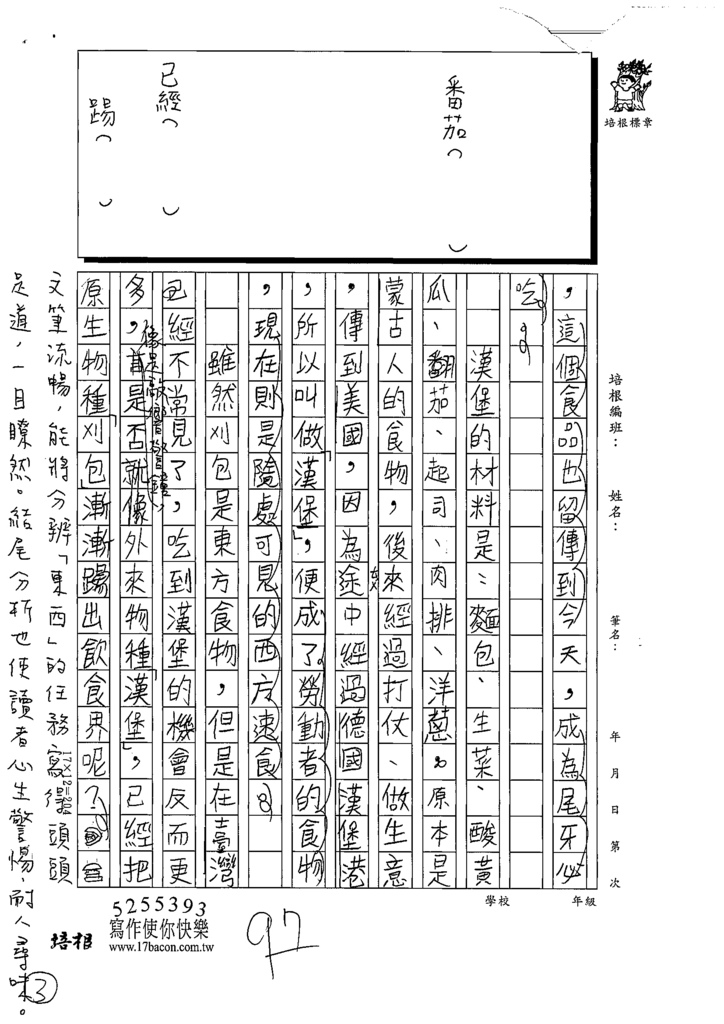 培根標章
番茄（　）
已經（　）
踢（　）
培根編班：　姓名：　筆名：　年　月　日　第　次
學校　年級
，這個食品也留傳到今天，成為尾牙必
吃。
漢堡的材料是：麵包、生菜、酸黃
瓜、翻茄、起司、肉排、洋蔥。原本是
蒙古人的食物，後來經過打仗、做生意
，傳到美國，因為途中經過德國漢堡港
，所以叫做「漢堡」，便成了勞動者的食物
，現在則是隨處可見的西方速食。
雖然刈包是東方食物，但是在臺灣
已經不常見了，吃到漢堡的機會反而更
多，是否就像外來物種「漢堡」，已經把
像是敲響警鐘，
原生物種「刈包」漸漸踢出飲食界呢？
17×12=204
文筆流暢，能將分辨「東西」的任務寫得頭頭
是道，一目瞭然。結尾分析也使讀者心生警惕，耐人尋味。
3
97
培根
5255393
寫作使你快樂
www.17bacon.com.tw